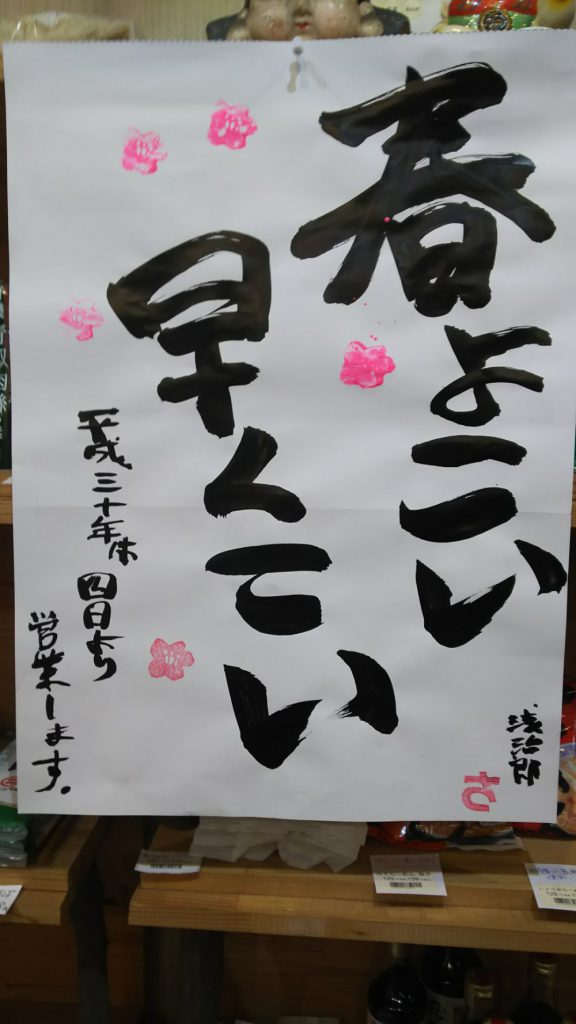 春よこい
早くこい
平成三十年休
四日より
営業します。
浅治郎
ち